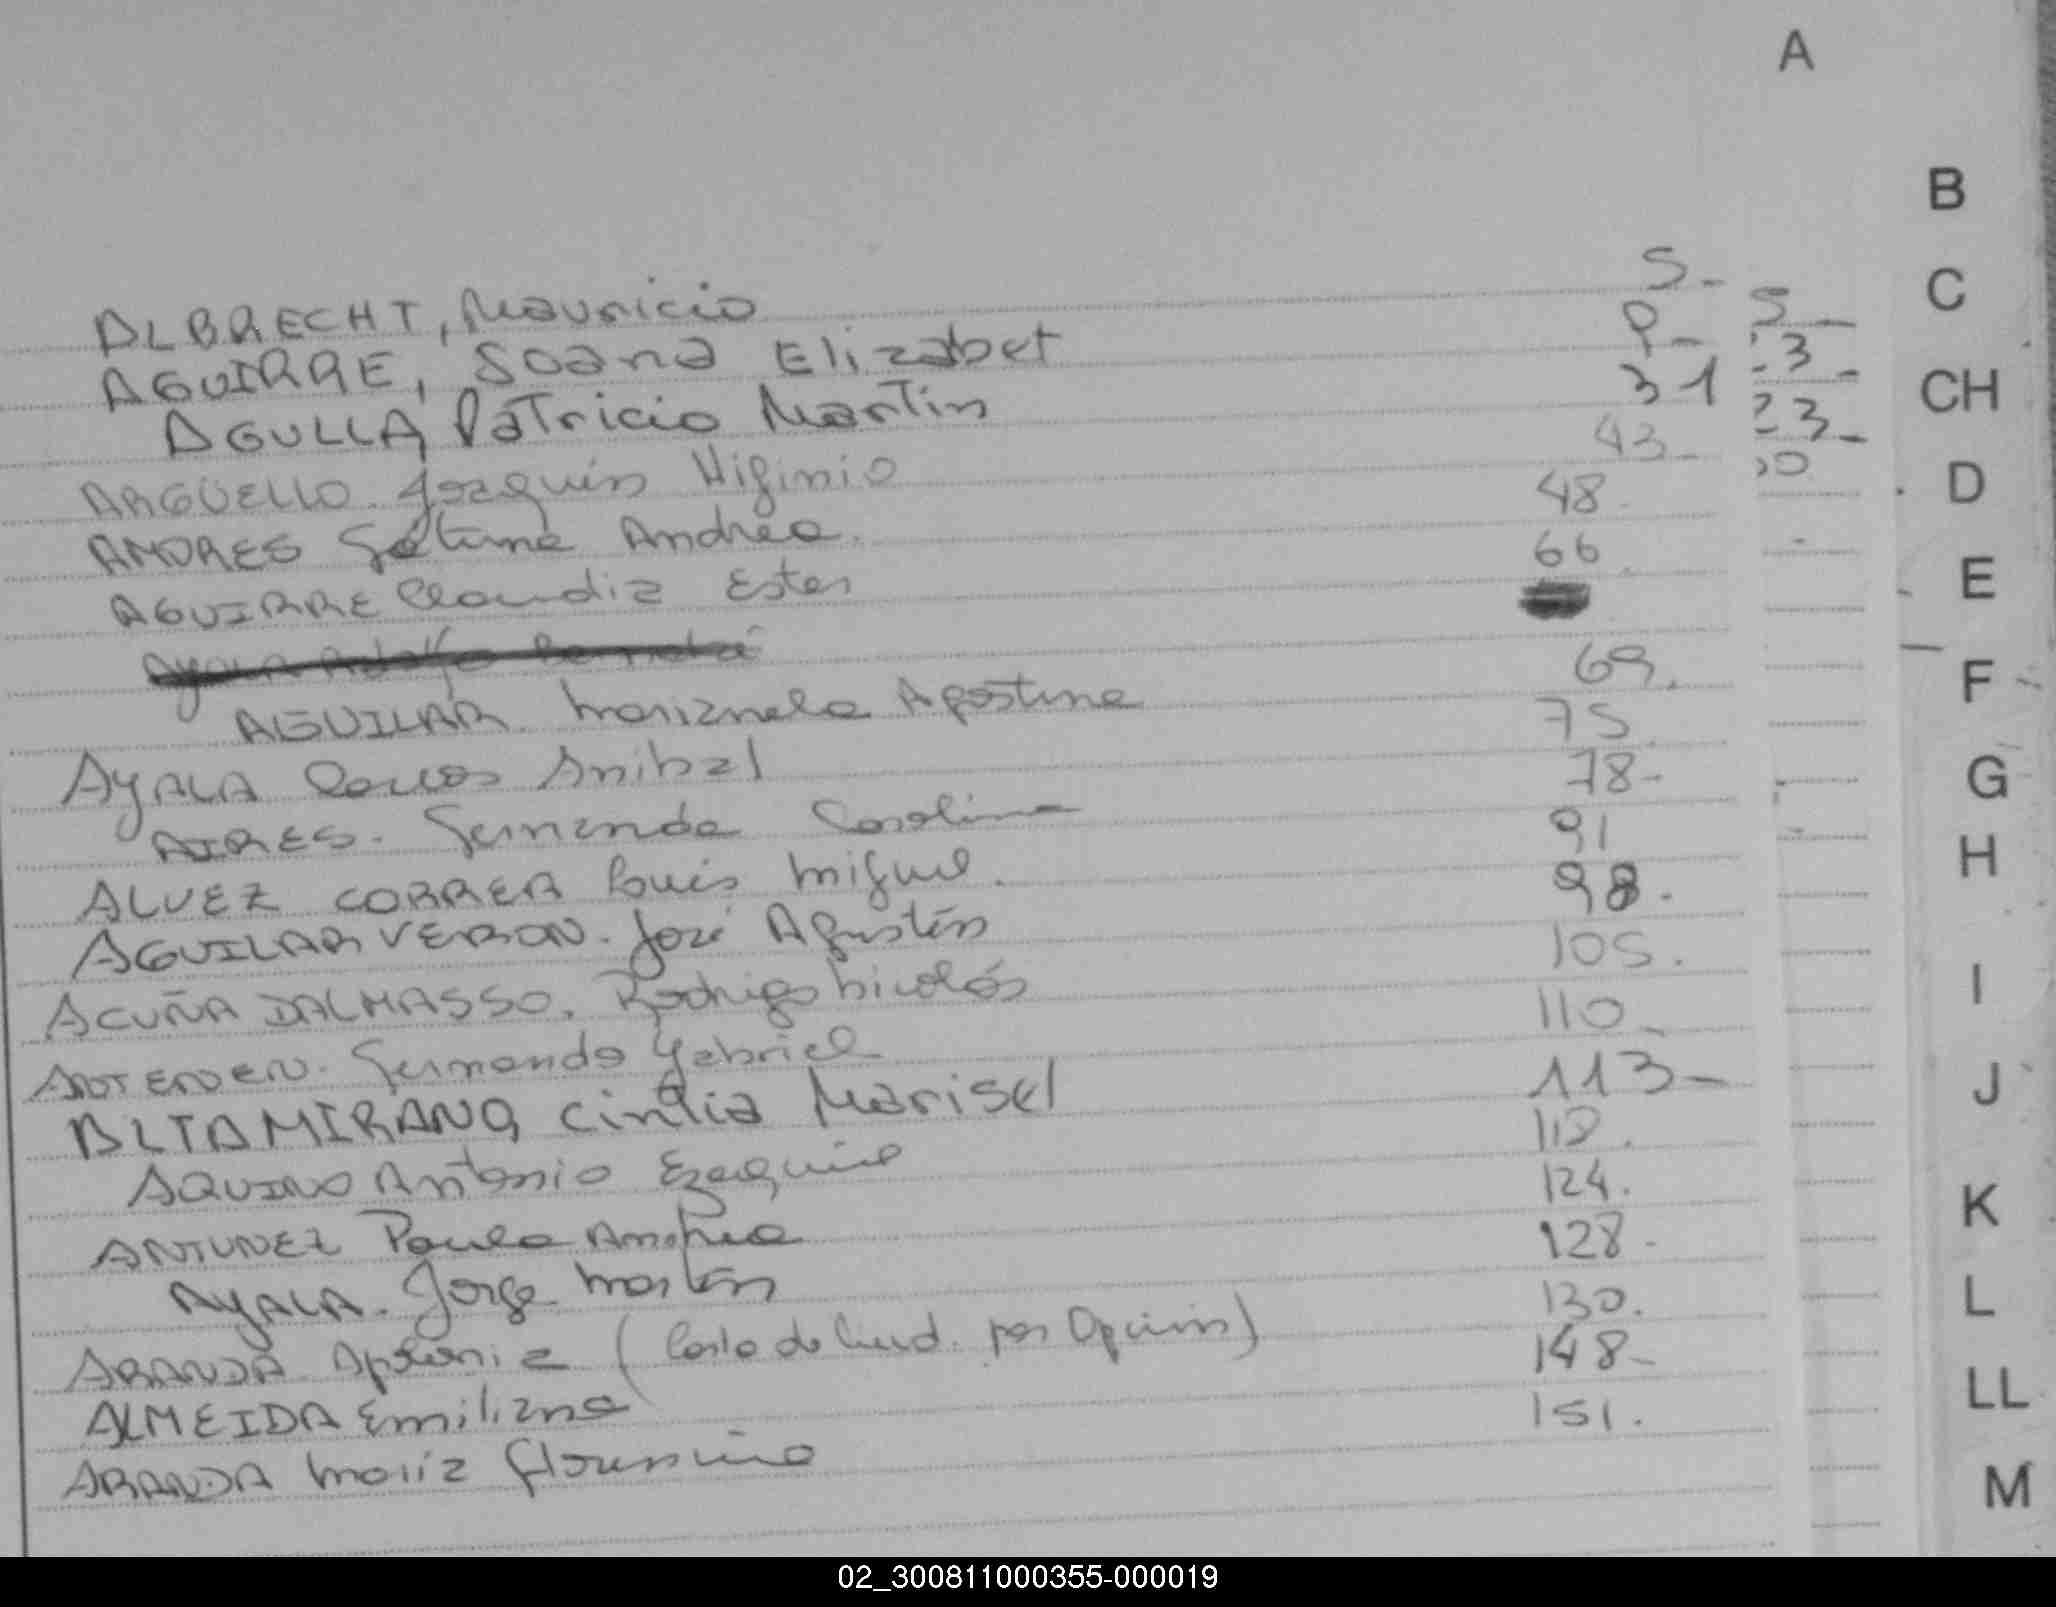 A
ALBRECHT, Mauricio 5-
AGUIRRE, Soana Elizabet 8-
AGULLA, Patricio Martín 31
ARGÜELLO. Joaquín Higinio 43-
ANDRES Fátima Andrea. 48.
AGUIRRE Claudia Ester 66.
AYALA Adolfo
AGUILAR Marianela Agostina 69.
AYALA Carlos Anibal 75.
AIRES. Fernanda Carolina 78-
ALVEZ CORRER Luis Miguel. 91
AGUILAR VERON. José Agustín 98.
ACUÑA DALMASSO. Rodrigo Nicolás 105.
Fernando Gabriel 110-
ALTAMIRANO, Cintia Marisel 113-
AQUINO Antonio Ezequiel 118.
ANTUNEZ Paula Andrea 124.
AYALA. Jorge Martín 128-
ARANDA Apolonia (Carta de Ciud. por Opción) 130.
ALMEIDA Emiliana 148-
ARANDA María Florencia 151.
5-
3-
23-
B
C
CH
D
E
F
G
H
I
J
K
L
LL
M
02_300811000355-000019